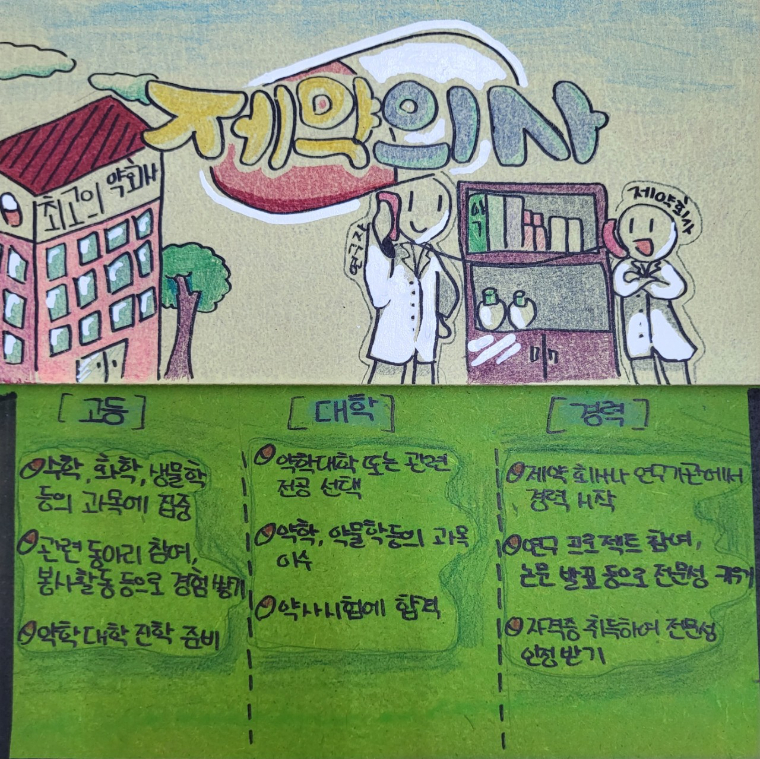 제약의사
최고의 약회사
연구자
약국
제약회사
[고등]
수학, 화학, 생물학
등의 과목에 집중
관련 동아리 참여,
봉사활동 등으로 경험 쌓기
약학대학 진학 준비
[대학]
약학대학 또는 관련
전공 선택
약학, 약물학등의 과목
이수
약사시험에 합격
[경력]
제약 회사나 연구기관에서
경력 시작
연구 프로젝트 참여,
논문 발표 등으로 전문성 키우기
자격증 취득하여 전문성
인정 받기